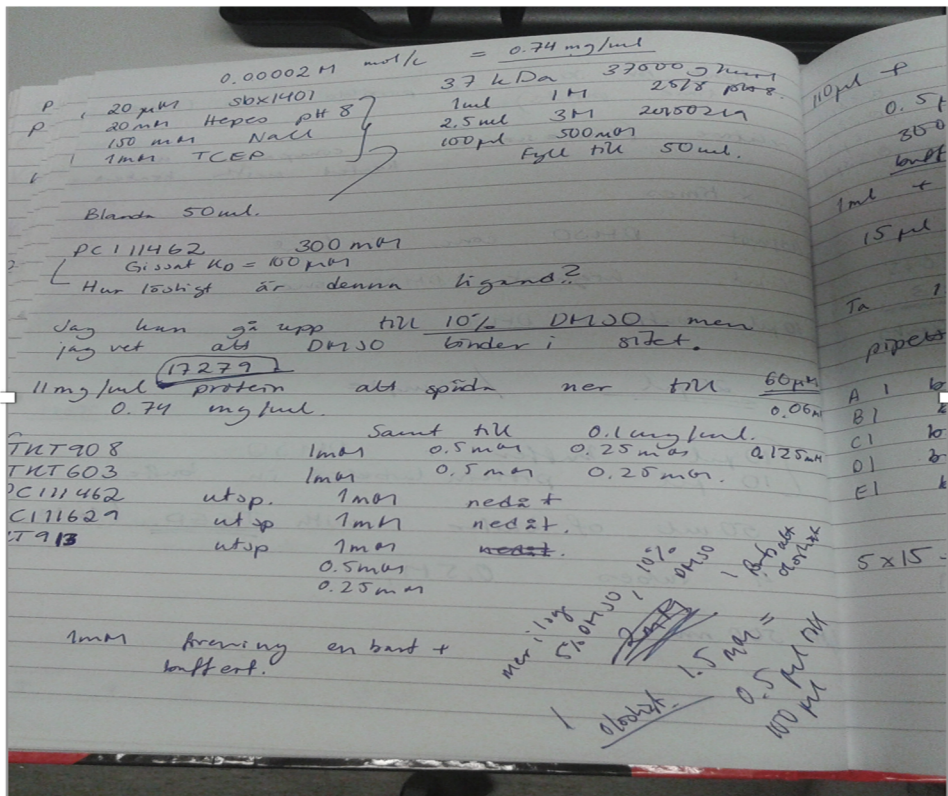 0.00002 M mol/L = 0.74 mg/ml
37 kDa 37000 g/mol
P 20 µM sbx1401 1ml 1M 25/8 pH 8.
P 20 mM Hepes pH 8 2.5 ml 3M 20150219
150 mM NaCl 100 µl 500 mM
1 mM TCEP Fyll till 50 ml.
Blanda 50 ml.
PC111462 300 mM
Gissat KD = 100 µM
Hur lösligt är denna ligand?
Jag kan gå upp till 10% DMSO men
jag vet att DMSO binder i sitet.
17279
11 mg/ml protein att späda ner till 60 µM
0.74 mg/ml. 0.06 M
Samt till 0.1 mg/ml.
TKT908 1mM 0.5 mM 0.25 mM 0.125 mM
TKT603 1mM 0.5 mM 0.25 mM.
PC111462 utsp. 1mM nedåt
C111629 utsp 1mM nedåt.
T913 utsp 1mM nedåt.
0.5 mM
0.25 mM
1mM förening enbart +
buffert.
mer i log
5% DMSO
1 olösligt.
10%
DMSO
1.5 mM =
0.5 µl
100 µl
110 µl +
0.5
300
buff
1ml +
15 µl
Ta 1
pipett
A1 b
B1 b
C1 b
D1 b
E1 b
5 x 15